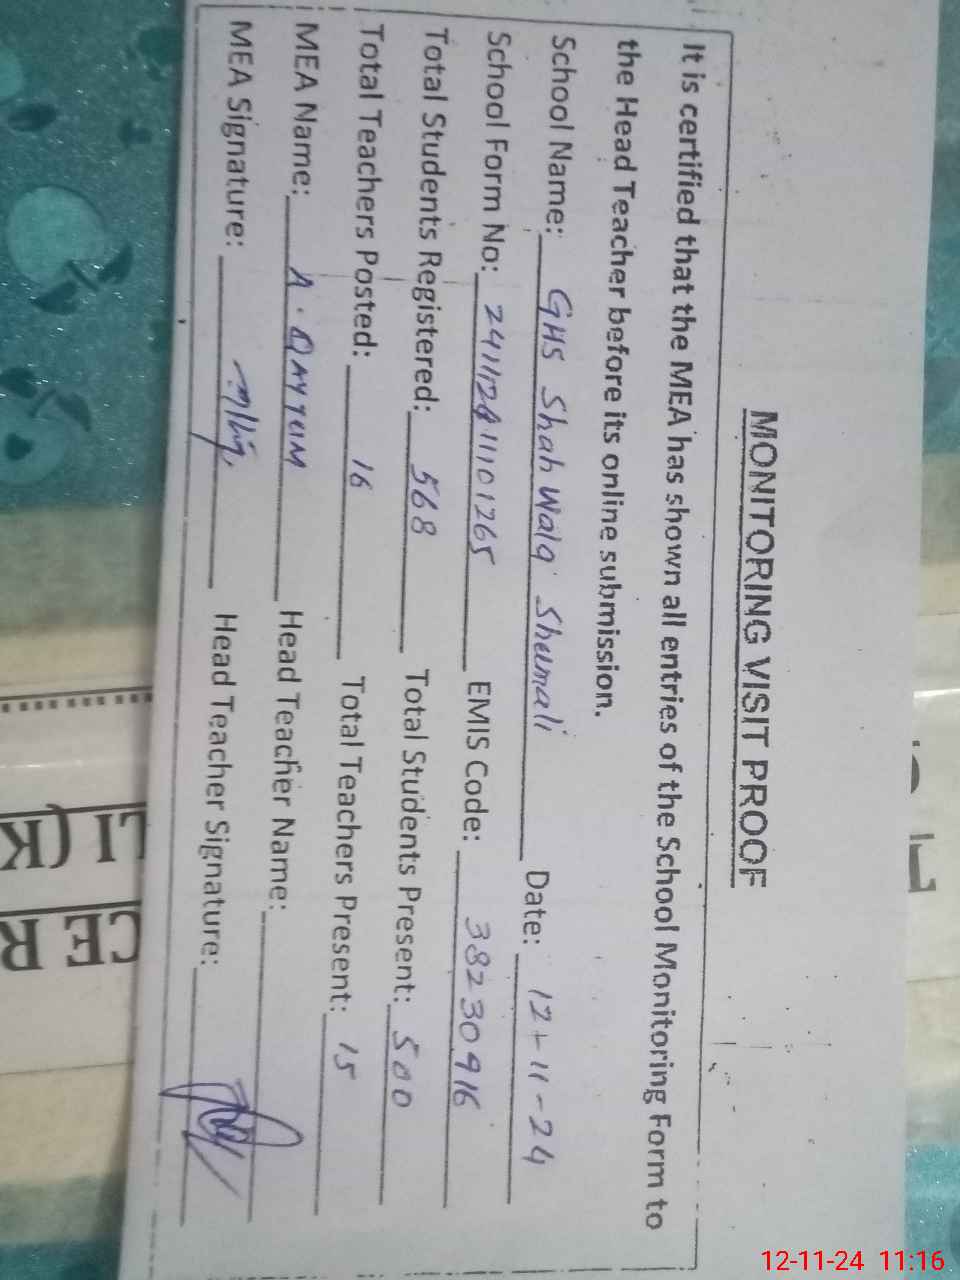 MONITORING VISIT PROOF
It is certified that the MEA has shown all entries of the School Monitoring Form to
the Head Teacher before its online submission.
School Name: GHS Shah Wala Shumali Date: 12-11-24
School Form No: EMIS Code: 38230916
Total Students Registered: 568 Total Students Present: 500
Total Teachers Posted: 16 Total Teachers Present: 15
MEA Name: A. QAYYUM Head Teacher Name:
MEA Signature: Head Teacher Signature:
LI (K
CE R
12-11-24 11:16